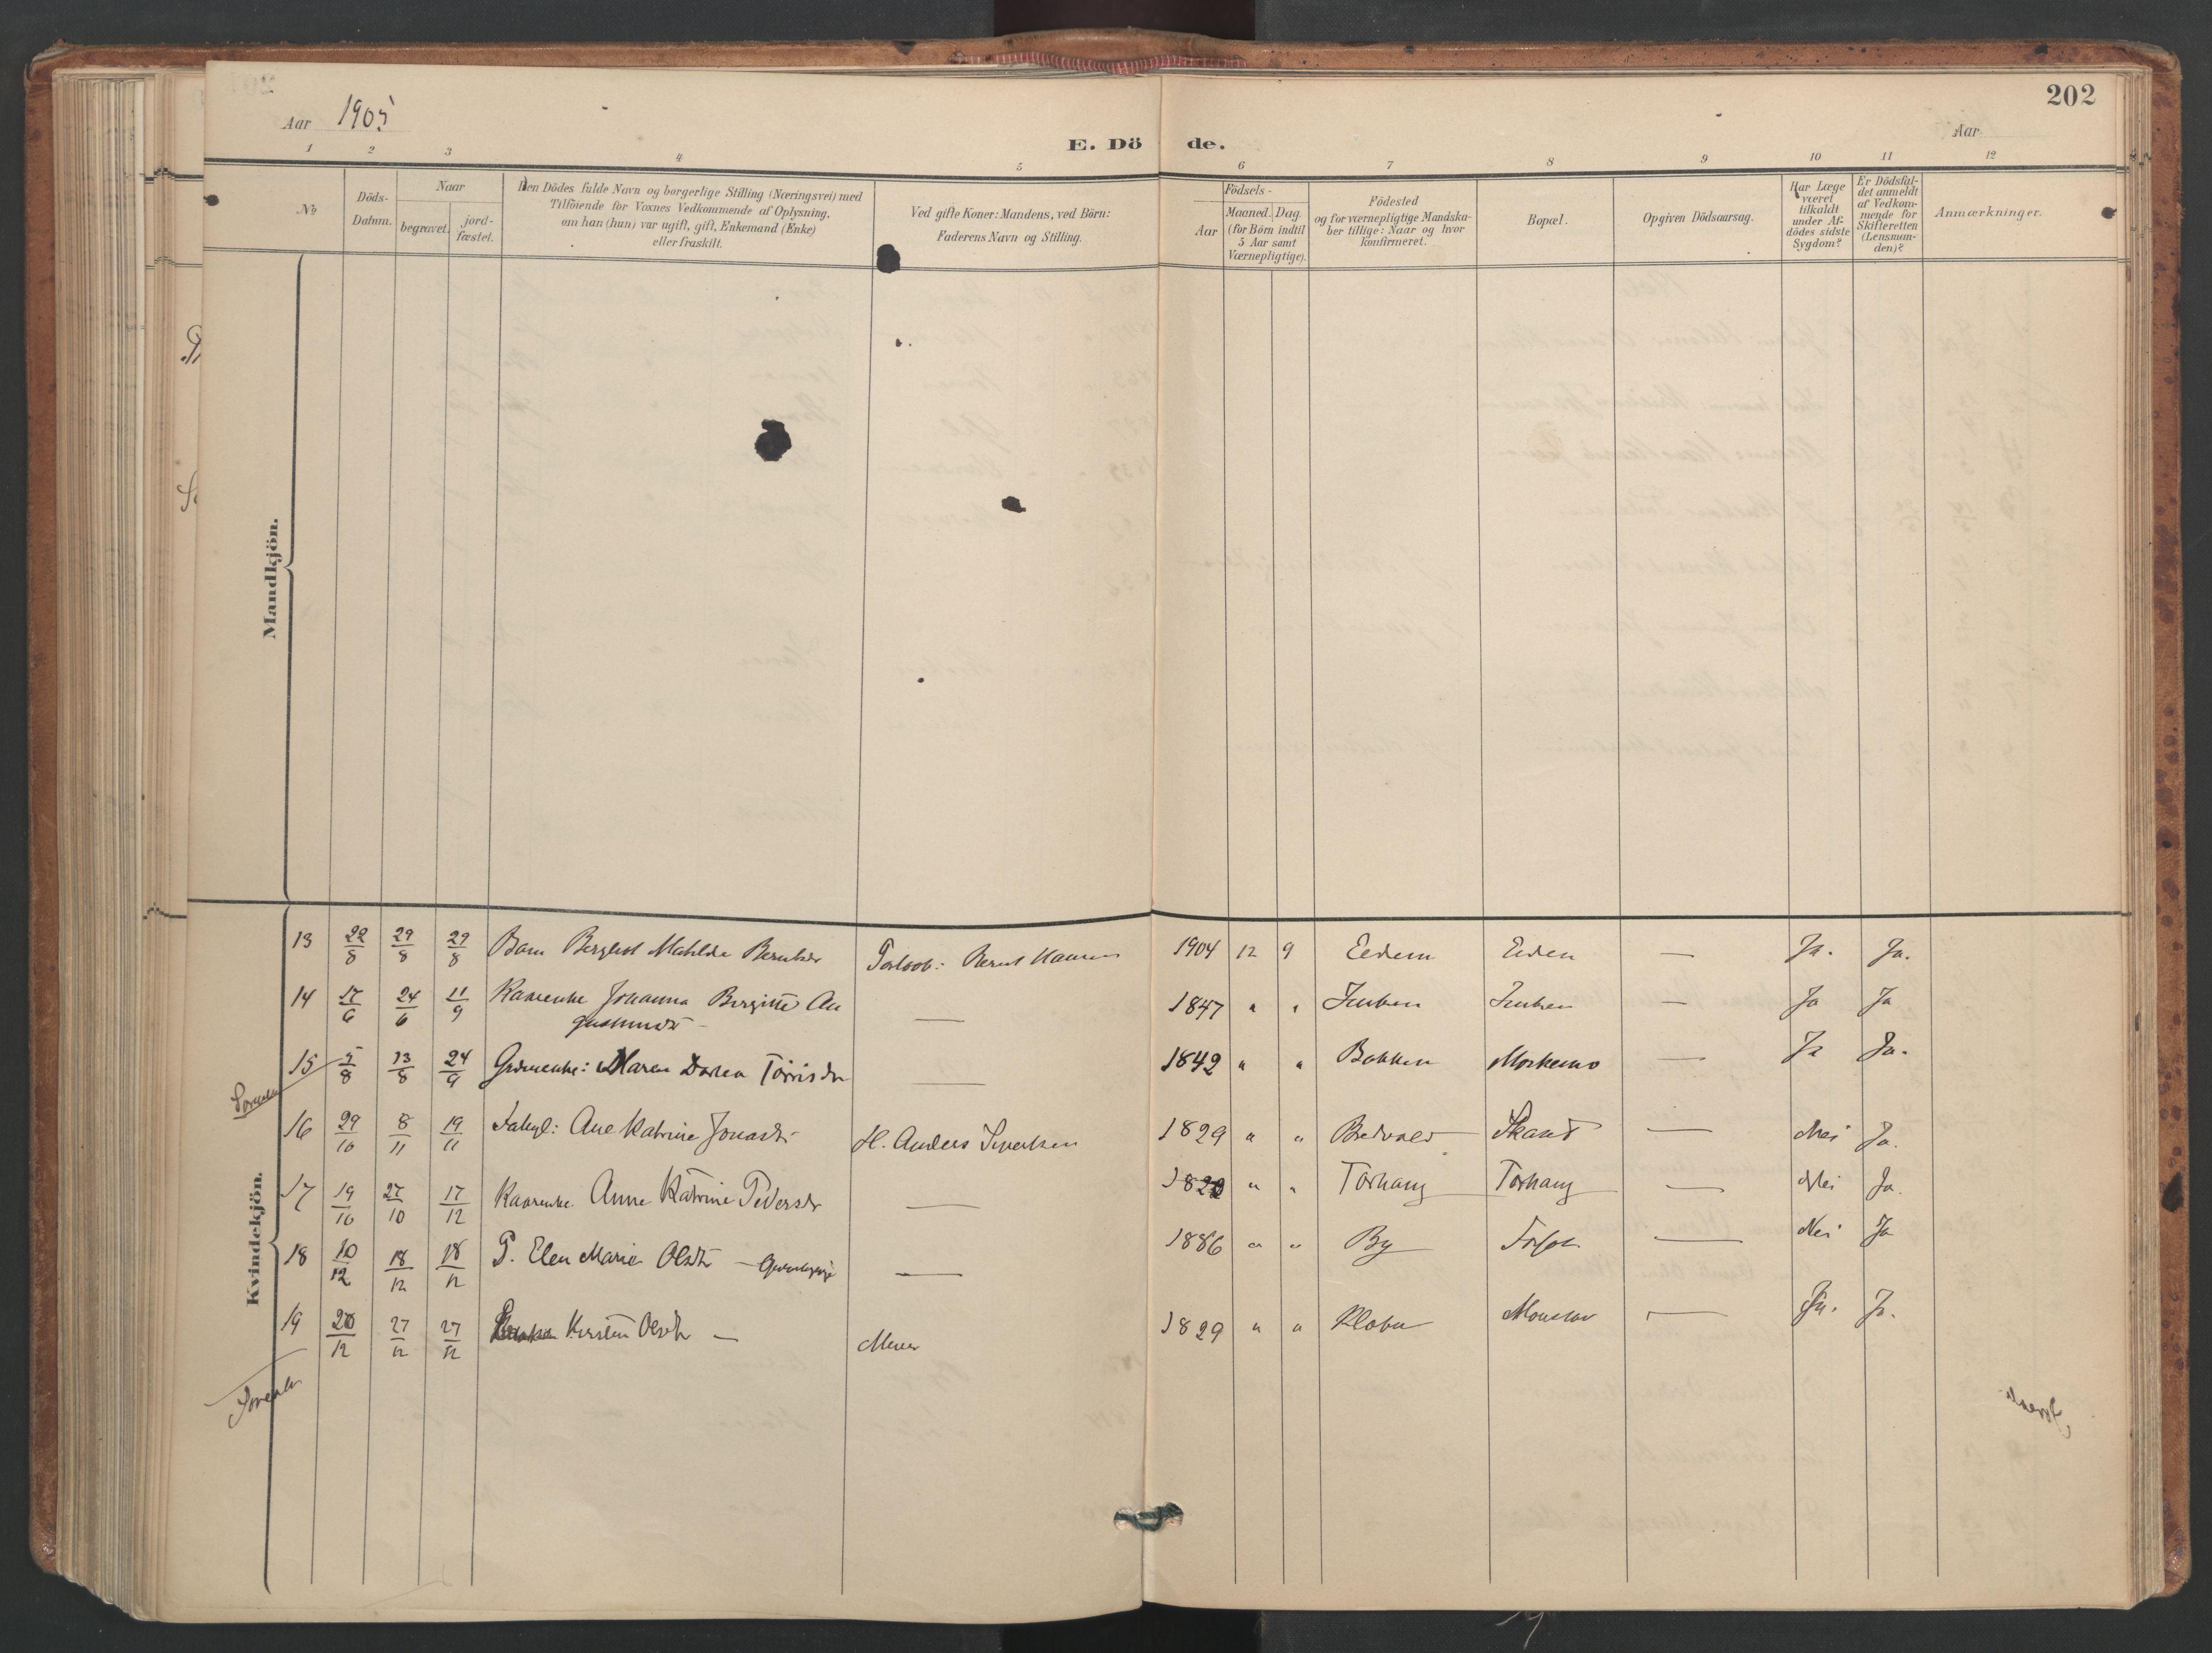 202
Aar 1905
Aar
E. Dö de.
1 2 3 4 5 6 7 8 9 10 11 12
No
Döds-Datum.
Naar
begravet.
jord-fæstet.
Den Dödes fulde Navn og borgerlige Stilling (Næringsvei) med
Tilföiende for Voxnes Vedkommende af Oplysning,
om han (hun) var ugift, gift, Enkemand (Enke)
eller fraskilt.
Ved gifte Koner: Mandens, ved Börn:
Faderens Navn og Stilling.
Födsels-
Aar
Maaned. Dag.
(for Börn indtil
5 Aar samt
Værnepligtige).
Födested
og for værnepligtige Mandska-
ber tillige: Naar og hvor
konfirmeret.
Bopæl.
Opgiven Dödsaarsag.
Har Læge
været
tilkaldt
under Af-
dödes sidste
Sygdom?
Er Dödsfal-
det anmeldt
af Vedkom-
mende for
Skifteretten
(Lensman-
den)?
Anmærkninger.
Mandkjön.
Kvindekjön.
13 22/8 29/8 29/8 Barn Bergliot Mathilde 1904 12 9 Eiden — Ja. Ja.
14 17/6 24/6 11/9 Kaarenke Johanna Birgitte Au
gustinusdtr — 1847 " " — Ja Ja
15 5/8 13/8 24/9 Grdmenke: Maren Dortea Törrisdr — 1842 " " Bakken Morkemo — Ja Ja.
16 29/10 8/11 19/11 Ane Katrine Jonasdr H. Anders Sivertsen 1829 " " Bredvold Skard — Nei Ja.
17 19/10 27/10 17/12 Kaarenke. Anne Katrine Pedersdr — " " Torhaug Torhaug — Nei Ja.
18 10/12 18/12 18/12 P. Elen Marie Olsdtr — 1886 " " By — Nei Ja
19 20/12 27/12 27/12 Kirsten Olsdtr — 1829 " " — Ja. Ja.